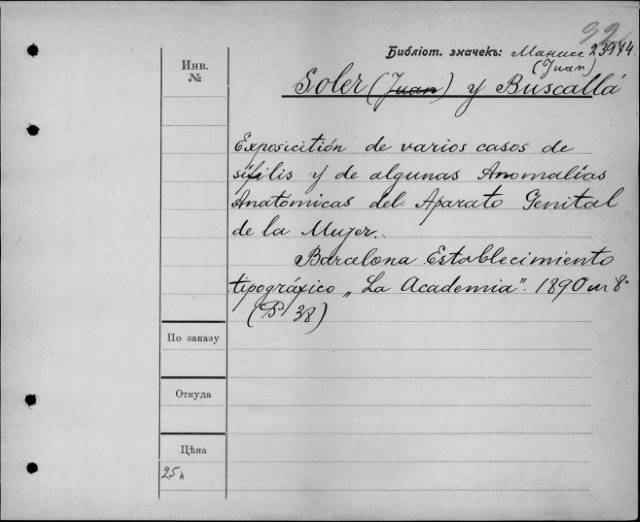 92
Библіот. значекъ: Манисс 23914.
(Juan)
Инв.
№
Soler (Juan) y Buscallá
Exposicitión de varios casos de
sífilis y de algunas Anomalías
Anatomicas del Aparato Genital
de la Mujer.
Barcelona Establecimiento
tipográxico „La Academia". 1890 in 8°
(P 38)
По заказу
Откуда
Цѣна
25 к